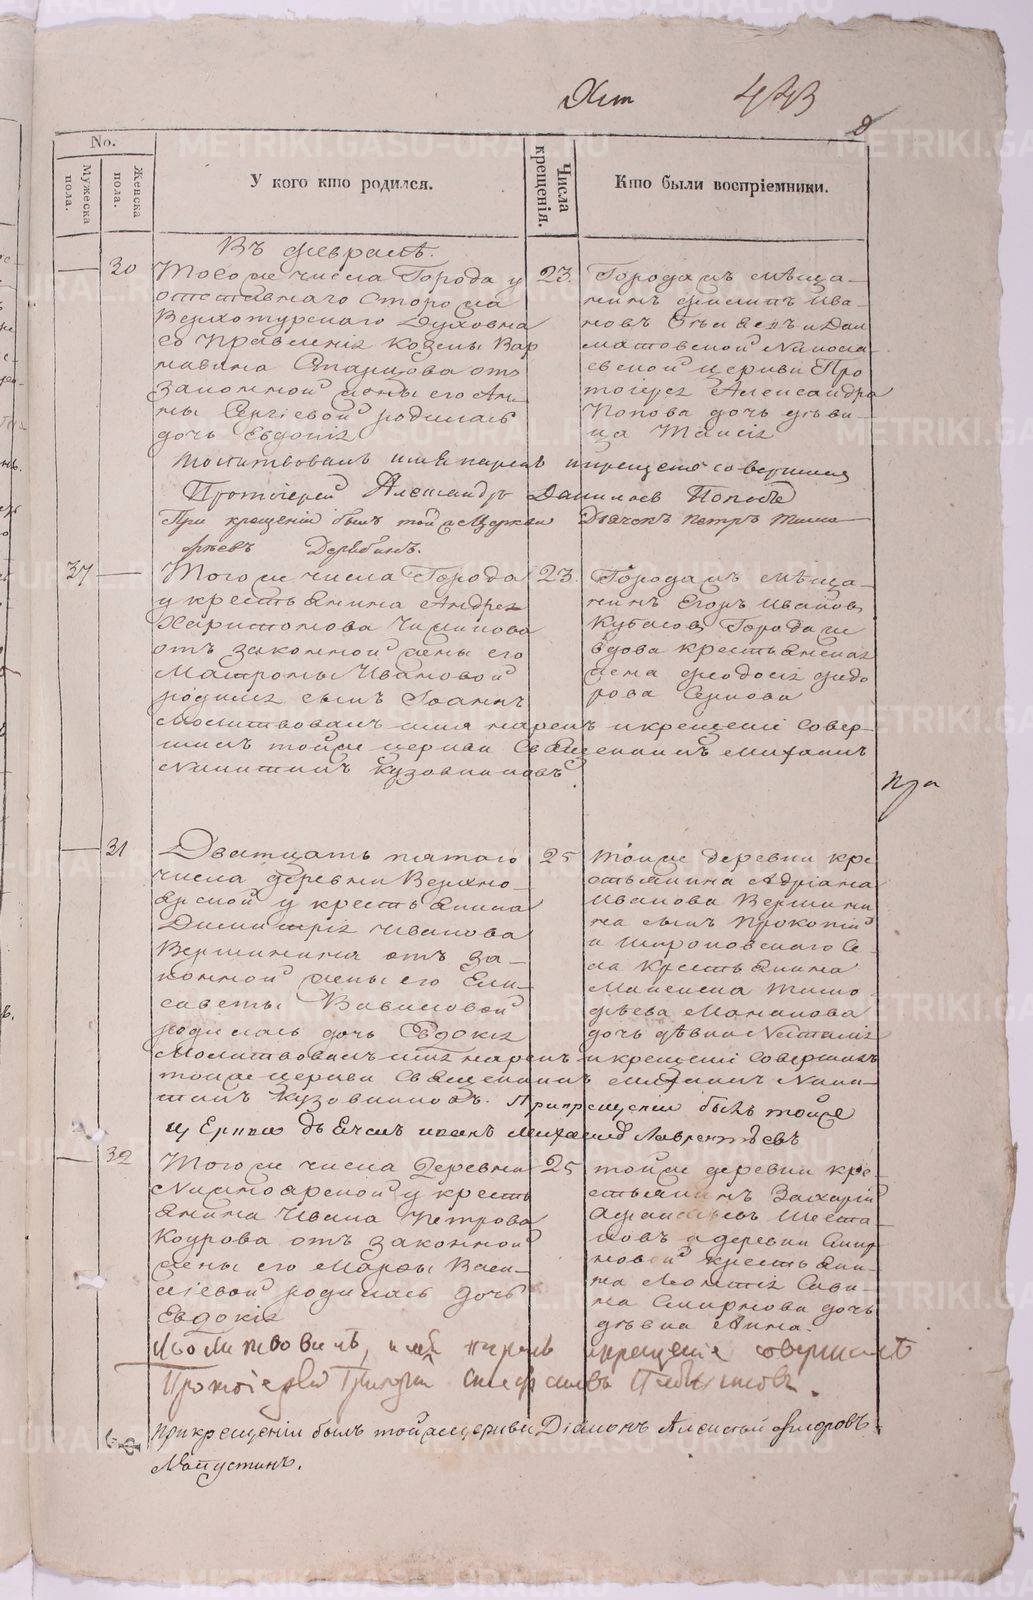 443
No.
Мужеска пола.
Женска пола.
У кого кто родился.
Числа крещенія.
Кто были воспріемники.
Въ февралѣ.
30
Того же числа Города у
отставнаго сторожа
Верхотурскаго Духовна
го Правленія Козмы Вар
законной жены его Ан
ны Сергіевой родилась
дочь Евдокія
23.
Города жъ мѣща-
нинъ Филипъ Ива-
новъ
матовской Никола-
евской церкви Про
тоіерея Александра
Попова дочь дѣви
ца Таисія
Молитвовалъ имя нарекъ и крещеніе совершилъ
Протоіерей Александръ Даниловъ Поповъ
При крещеніи былъ той же Церкви Дьячекъ Петръ Тимо
фѣевъ Дерябинъ.
37
Того же числа Города
у крестьянина Андрея
Харитонова
отъ законной жены его
Матроны Ивановой
родился сынъ Іоаннъ
23.
Города жъ мѣща-
нинъ Егоръ Ивановъ
Кубасовъ Города же
вдова крестьянская
жена Феодосія Федо
рова
Молитвовалъ имя нарекъ и крещеніе совер-
шилъ той же церкви Священникъ Михаилъ
Никитинъ Кузовниковъ.
31
Дватцать пятаго
числа деревни Верхно-
ярской у крестьянина
Димитрія Иванова
Вершинина отъ за-
конной жены его Ели-
саветы Вавиловой
родилась дочь Евдокія
25
той же деревни кре
стьянина Адріана
Иванова Вершини
на сынъ Прокопій
и Широковскаго Се-
ла крестьянина
Максима Тимо
фѣева
дочь дѣвка Наталія
Молитвовалъ имя нарекъ и крещеніе совершилъ
той же церкви Священникъ Михаилъ Ники-
тинъ Кузовниковъ. При крещеніи былъ той же
церкви дьячекъ Иванъ Михайловъ Лаврентьевъ
32
Того же числа Деревни
Нижноярской у кресть
янина Ивана Петрова
отъ законной
жены его Марфы Васи-
ліевой родилась дочь
Евдокія
25
той же деревни кре
стьянинъ Захарій
Афанасьевъ Шеста
ковъ и деревни Смир
новой крестьяни-
на Савы
на Смирнова дочь
дѣвка Анна.
Молитвовалъ, имя нарекъ и крещеніе совершилъ
Протоіерей Григорій Стефановъ
При крещеніи былъ той же церкви Діаконъ Алексѣй Федоровъ
Капустинъ.
METRIKI.GASU-URAL.RU